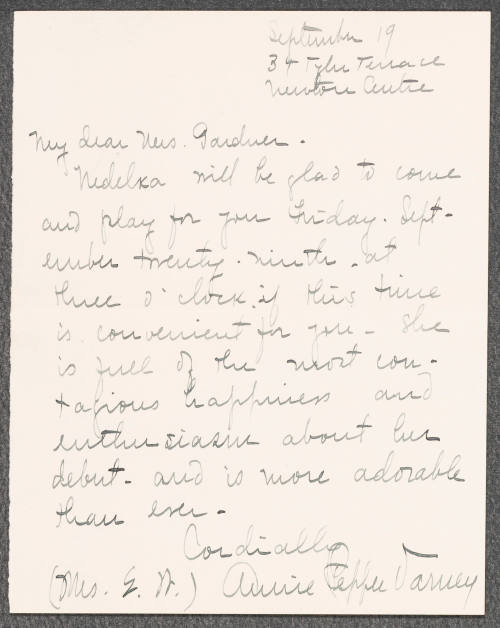 September 19
34 Tyler Terrace
Newton Centre
My dear Mrs. Gardner.
Nedelka will be glad to come
and play for you Friday. Sept-
ember twenty-ninth - at
three o'clock, if this time
is convenient for you - She
is full of the most con-
tagious happiness and
enthusiasm about her
debut - and is more adorable
than ever -
Cordially
(Mrs. E. W.) Annie Pepper Varney